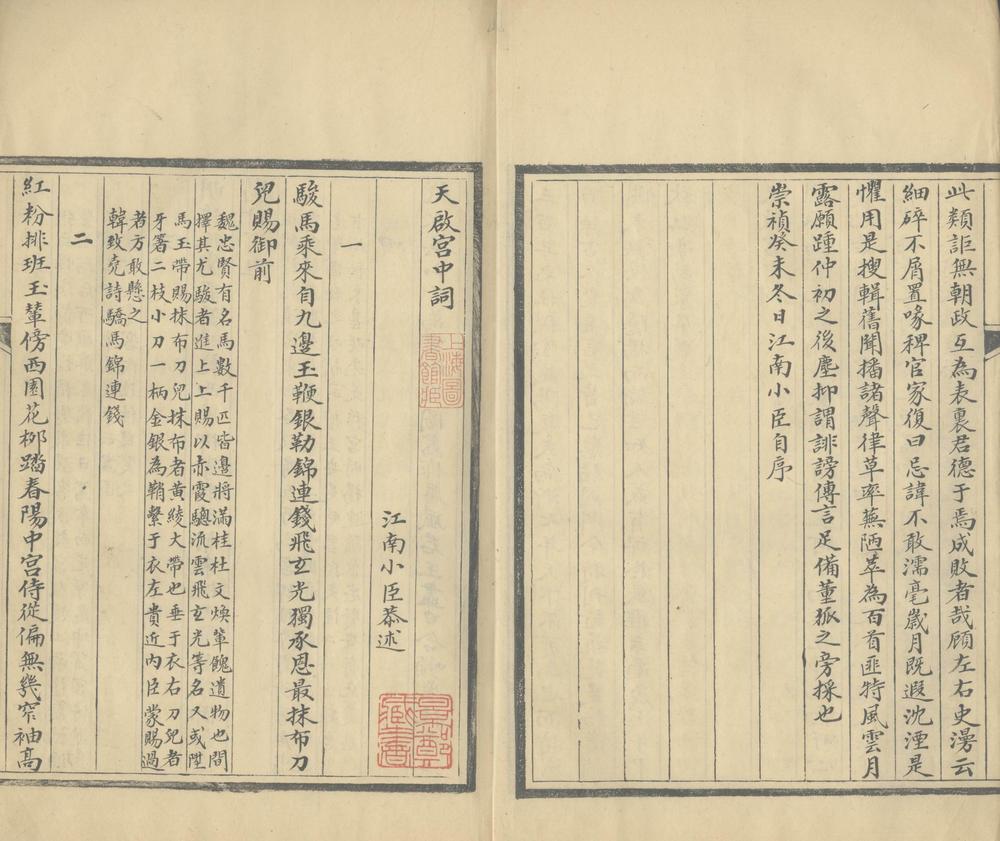 此類詎無朝政互為表裏君德于焉成敗者哉顧左右史漫云
細碎不屑置喙稗官家復曰忌諱不敢濡毫歲月既遐沈湮是
懼用是搜輯舊聞播諸聲律草率蕪陋萃為百首匪特風雲月
露願踵仲初之後塵抑謂誹謗傳言足備董狐之旁採也
崇禎癸未冬日江南小臣自序
天啟宮中詞
上海圖書館藏
江南小臣恭述
一
駿馬乘來自九邊玉鞭銀勒錦連錢飛玄光獨承恩最抹布刀
兒賜御前
魏忠賢有名馬數千匹皆邊將滿桂杜文煥輩餽遺物也間
擇其尤駿者進上上賜以赤霞驄流雲飛玄光等名又或陞
馬玉帶賜抹布刀兒抹布者黃綾大帶也垂于衣右刀兒者
牙箸二枝小刀一柄金銀為鞘繫于衣左貴近內臣蒙賜過
者方敢懸之
韓致堯詩驕馬錦連錢
二
紅粉排班玉輦傍西園花栁踏春陽中宮侍從偏無幾窄袖高